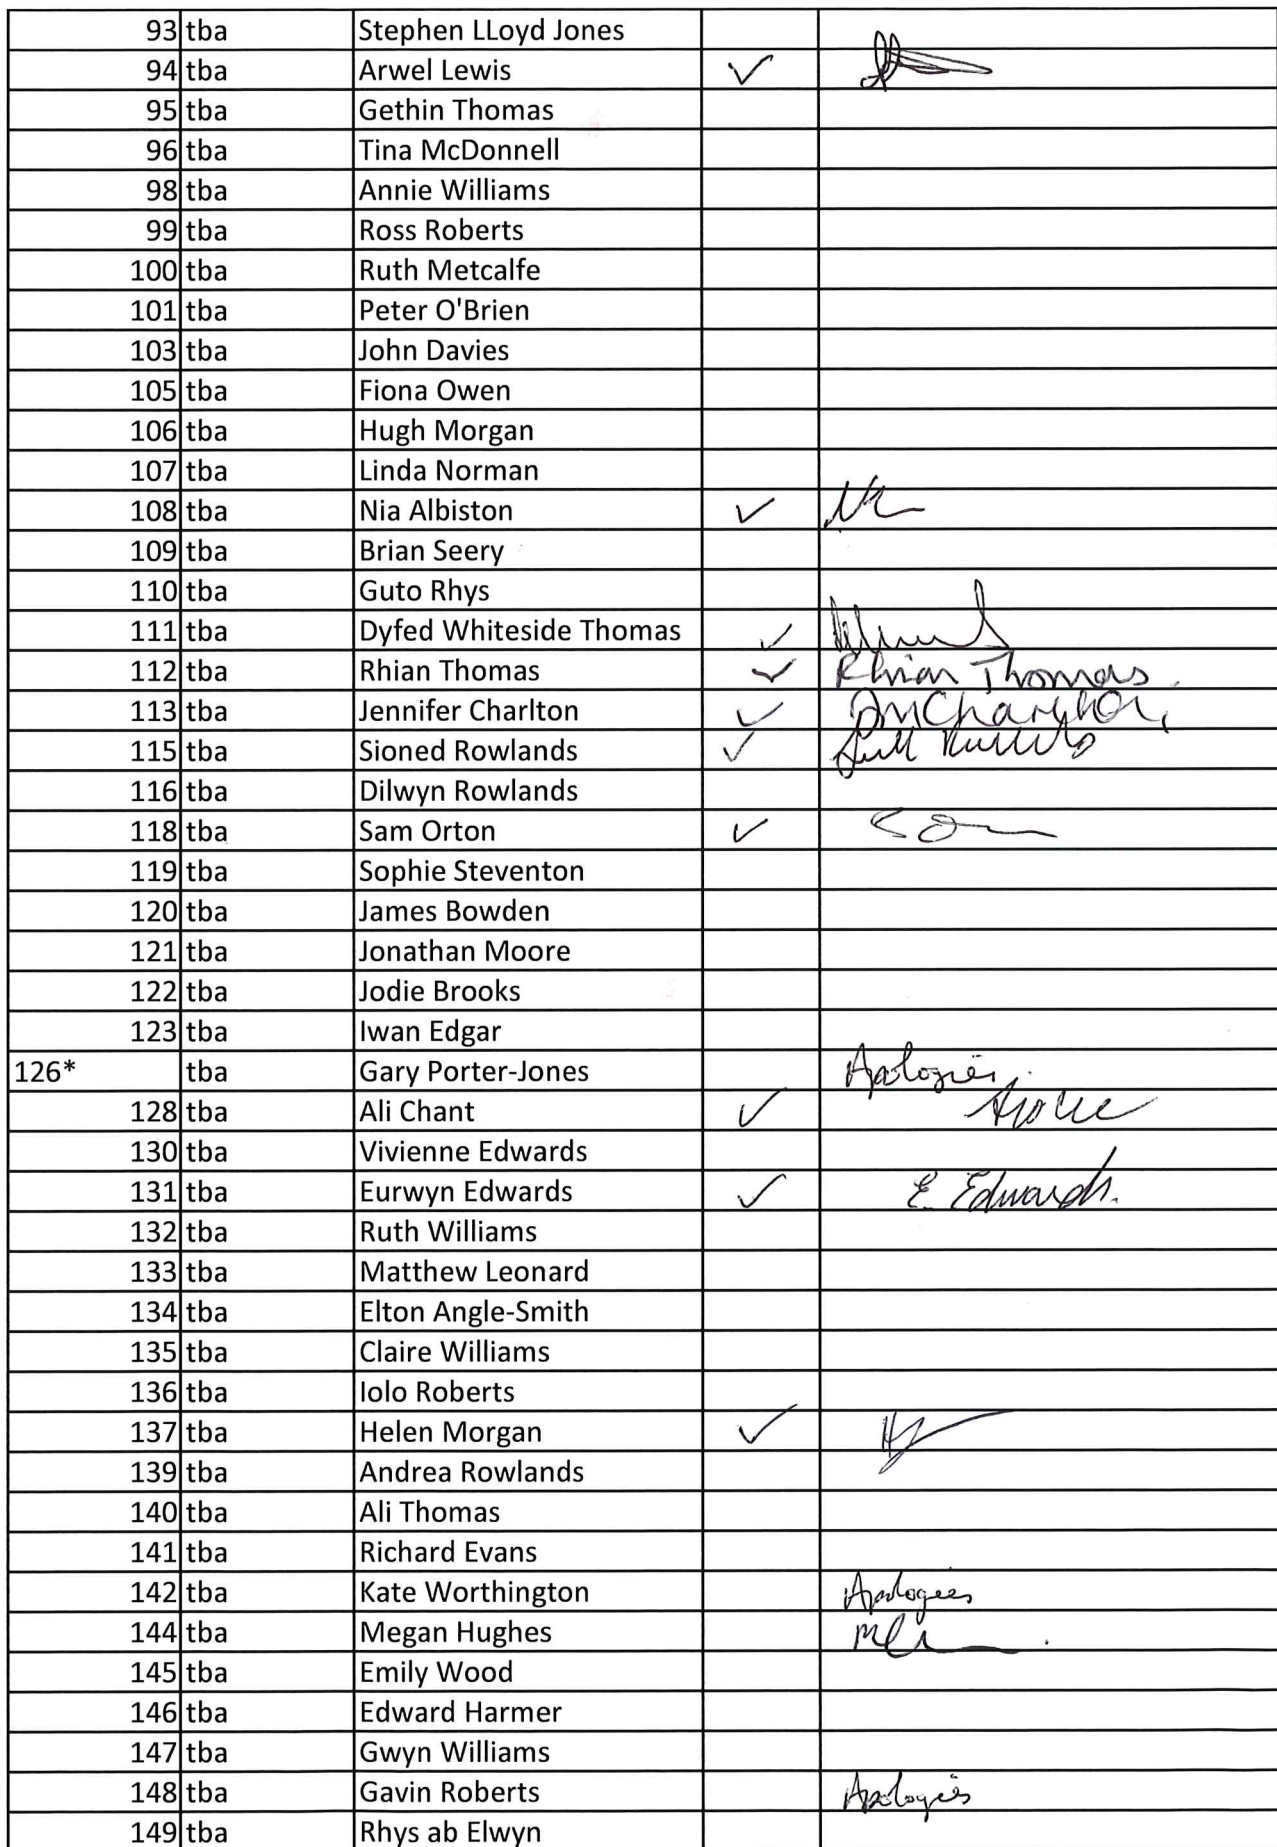 93 tba Stephen LLoyd Jones
94 tba Arwel Lewis ✓
95 tba Gethin Thomas
96 tba Tina McDonnell
98 tba Annie Williams
99 tba Ross Roberts
100 tba Ruth Metcalfe
101 tba Peter O'Brien
103 tba John Davies
105 tba Fiona Owen
106 tba Hugh Morgan
107 tba Linda Norman
108 tba Nia Albiston ✓
109 tba Brian Seery
110 tba Guto Rhys
111 tba Dyfed Whiteside Thomas ✓
112 tba Rhian Thomas ✓ Rhian Thomas
113 tba Jennifer Charlton ✓
115 tba Sioned Rowlands ✓
116 tba Dilwyn Rowlands
118 tba Sam Orton ✓
119 tba Sophie Steventon
120 tba James Bowden
121 tba Jonathan Moore
122 tba Jodie Brooks
123 tba Iwan Edgar
126* tba Gary Porter-Jones Apologies
128 tba Ali Chant ✓
130 tba Vivienne Edwards
131 tba Eurwyn Edwards ✓ E. Edwards.
132 tba Ruth Williams
133 tba Matthew Leonard
134 tba Elton Angle-Smith
135 tba Claire Williams
136 tba Iolo Roberts
137 tba Helen Morgan ✓
139 tba Andrea Rowlands
140 tba Ali Thomas
141 tba Richard Evans
142 tba Kate Worthington Apologies
144 tba Megan Hughes
145 tba Emily Wood
146 tba Edward Harmer
147 tba Gwyn Williams
148 tba Gavin Roberts Apologies
149 tba Rhys ab Elwyn